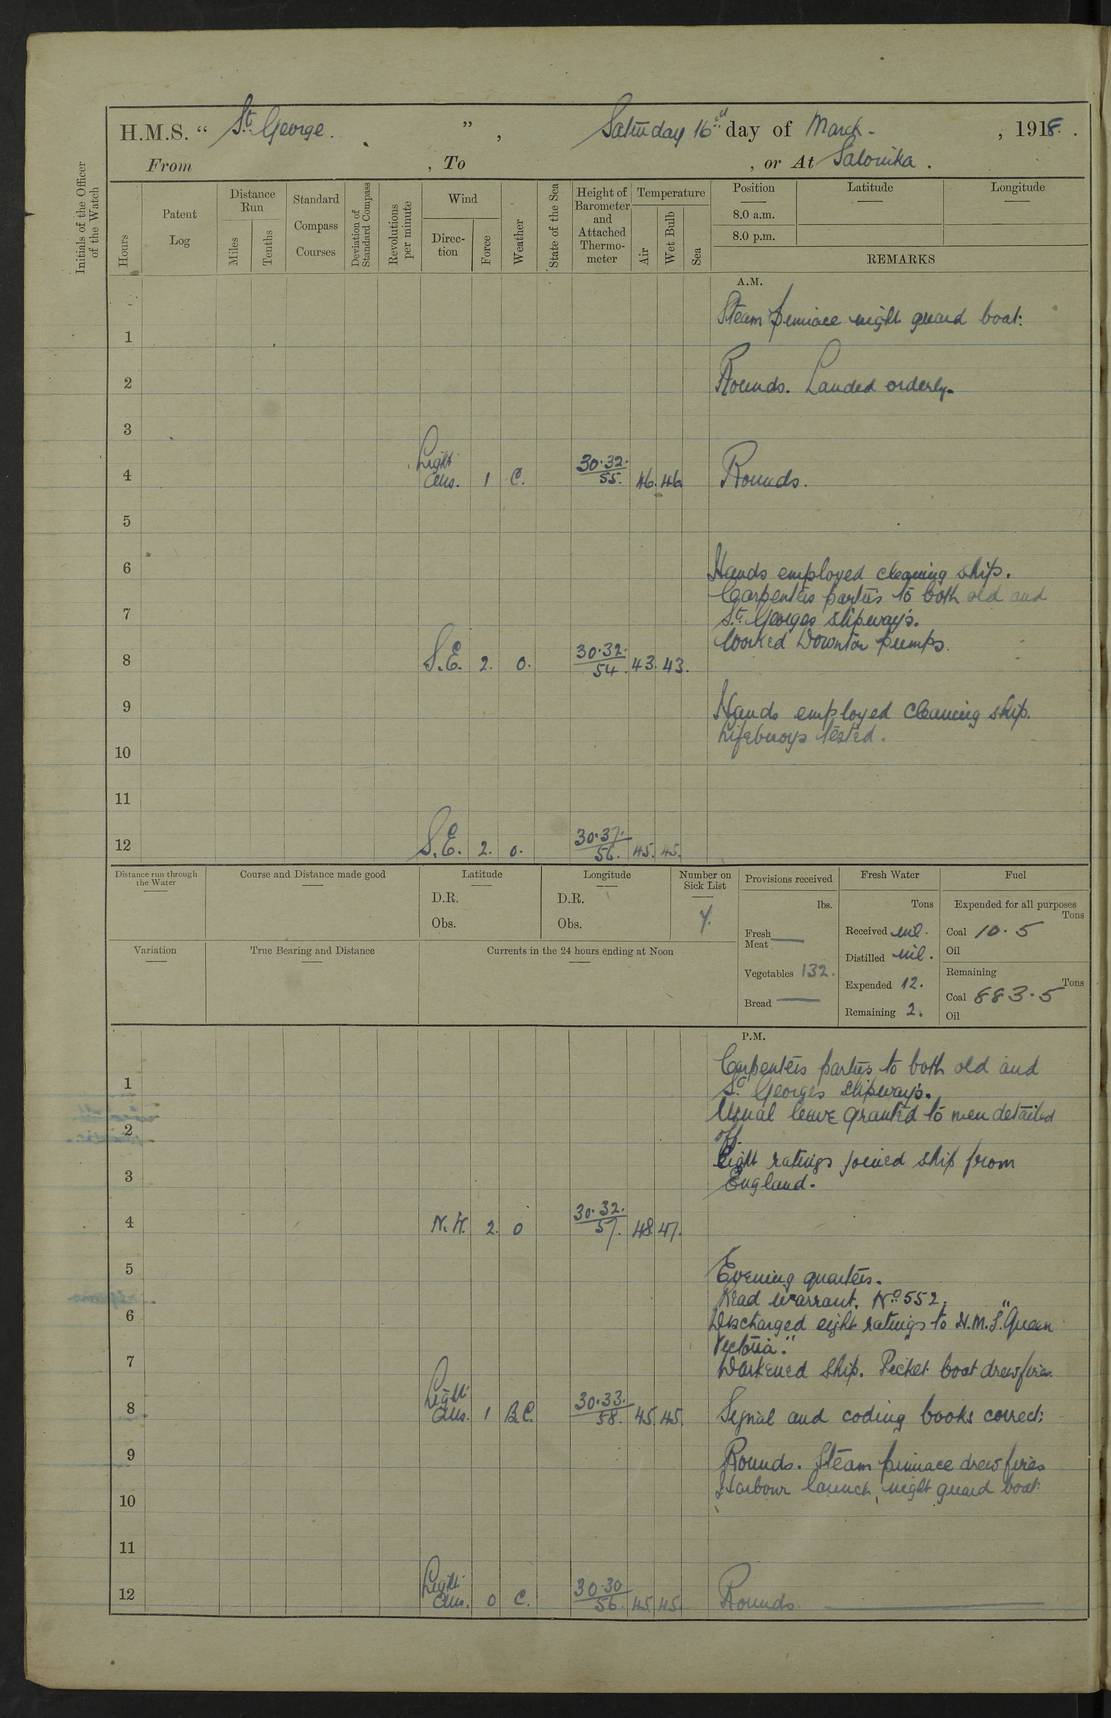 H.M.S. “ St. George. ” , Saturday 16th day of March - , 1918. .
From , To , or At Salonika .
Initials of the Officer of the Watch
Hours
Patent Log
Distance Run
Miles
Tenths
Standard Compass Courses
Deviation of Standard Compass
Revolutions per minute
Wind
Direction
Force
Weather
State of the Sea
Height of Barometer and Attached Thermometer
Temperature
Air
Wet Bulb
Sea
Position Latitude Longitude
8.0 a.m.
8.0 p.m.
REMARKS
A.M.
Steam pinnace night guard boat.
1
2 Rounds. Landed orderly.
3
4 Light airs. 1 C. 30.32. 55. 46. 46 Rounds.
5
6 Hands employed cleaning ship.
Carpenters parties to both old and
7 St. Georges slipways.
Worked Downton pumps.
8 S.E. 2. O. 30.32. 54. 43. 43.
9 Hands employed cleaning ship.
Lifebuoys tested.
10
11
12 S.E. 2. O. 30.37. 56. 45. 45.
Distance run through the Water
Course and Distance made good
Latitude
D.R.
Obs.
Longitude
D.R.
Obs.
Number on Sick List
7.
Provisions received
lbs.
Fresh Meat —
Vegetables 132.
Bread —
Fresh Water
Tons
Received nil.
Distilled nil.
Expended 12.
Remaining 2.
Fuel
Expended for all purposes
Tons
Coal 10.5
Oil
Remaining
Tons
Coal 883.5
Oil
Variation
True Bearing and Distance
Currents in the 24 hours ending at Noon
P.M.
Carpenters parties to both old and
1 St. Georges slipways.
Usual leave granted to men detailed
2 off.
Eight ratings joined ship from
3 England.
4 N.W. 2. O 30.32. 57. 48 47.
5 Evening quarters.
Read warrant. No. 552.
6 Discharged eight ratings to H.M.S. "Queen
Victoria."
7 Darkened ship. Picket boat drew fires.
8 Light airs. 1 B.C. 30.33. 58. 45. 45. Signal and coding books correct.
9 Rounds. Steam pinnace drew fires
Harbour launch, night guard boat.
10
11
12 Light airs. 0 C. 30.30 56. 45. 45. Rounds.